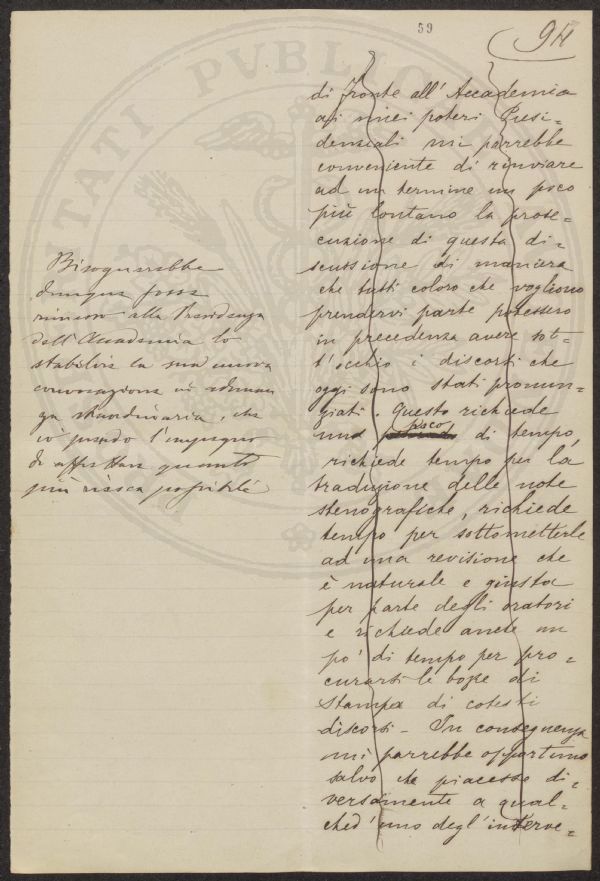 59
94
di fronte all' Accademia
ai miei poteri Presi=
denziali mi parrebbe
conveniente di rinviare
ad un termine un poco
più lontano la prose=
cuzione di questa di=
scussione di maniera
che tutti coloro che vogliono
prendervi parte potessero
in precedenza avere sot=
t'occhio i discorsi che
oggi sono stati pronun=
ziati. Questo richiede
un poco di tempo,
richiede tempo per la
traduzione delle note
stenografiche, richiede
tempo per sottometterle
ad una revisione che
è naturale e giusta
per parte degli oratori
e richiede anche un
po' di tempo per pro=
curarsi le bozze di
stampa di cotesti
discorsi - In conseguenza
mi parrebbe opportuno
salvo che piacesse di=
versamente a qual=
ched'uno degl'interve=
Bisognerebbe
dunque fosse
rimesso alla Presidenza
dell'Accademia lo
stabilire la sua nuova
convocazione in adunan
za straordinaria, che
io prendo l'impegno
di affrettare quanto
più riesca possibile
PVBL